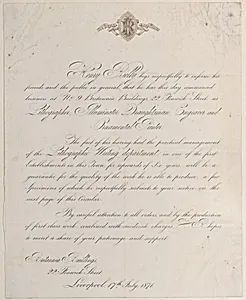 Henry Kelly begs respectfully to inform his
friends and the public in general, that he has this day commenced
business at No 9 Britannia Buildings, 22 Fenwick Street as
Lithographer, Illuminator, Draughtsman, Engraver and
Ornamental Printer.
The fact of his having had the practical management
of the Lithographic Writing department in one of the first
Establishments in this Town, for upwards of Six years, will be a
guarantee for the quality of the work he is able to produce, a few
specimens of which he respectfully submits to your notice on the
next page of this Circular.
By careful attention to all orders, and by the production
of first class work, combined with moderate charges, he hopes
to merit a share of your patronage and support.
Britannia Buildings,
22 Fenwick Street
Liverpool, 17th July, 1871